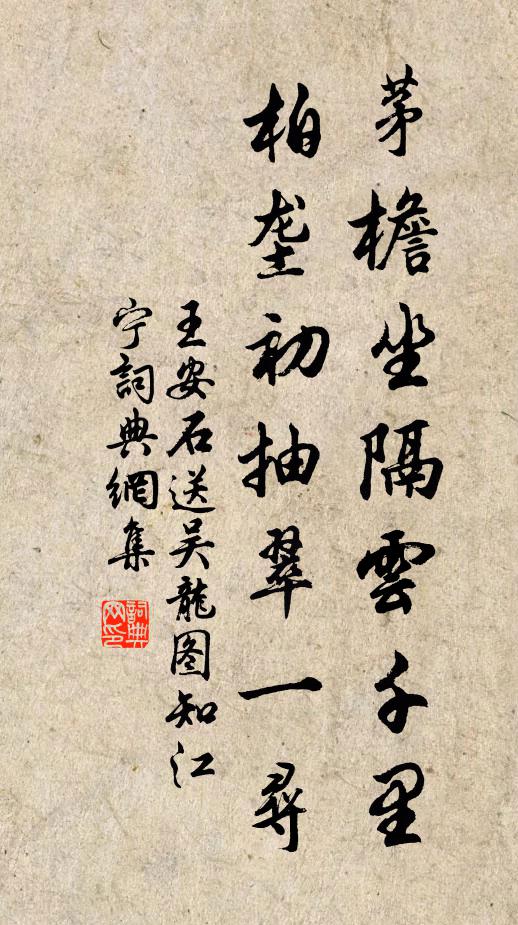 茅檐坐隔雲千里
柏垄初抽翠一尋
王安石送吴龍图知江
宁詞典網集
詞典
网印